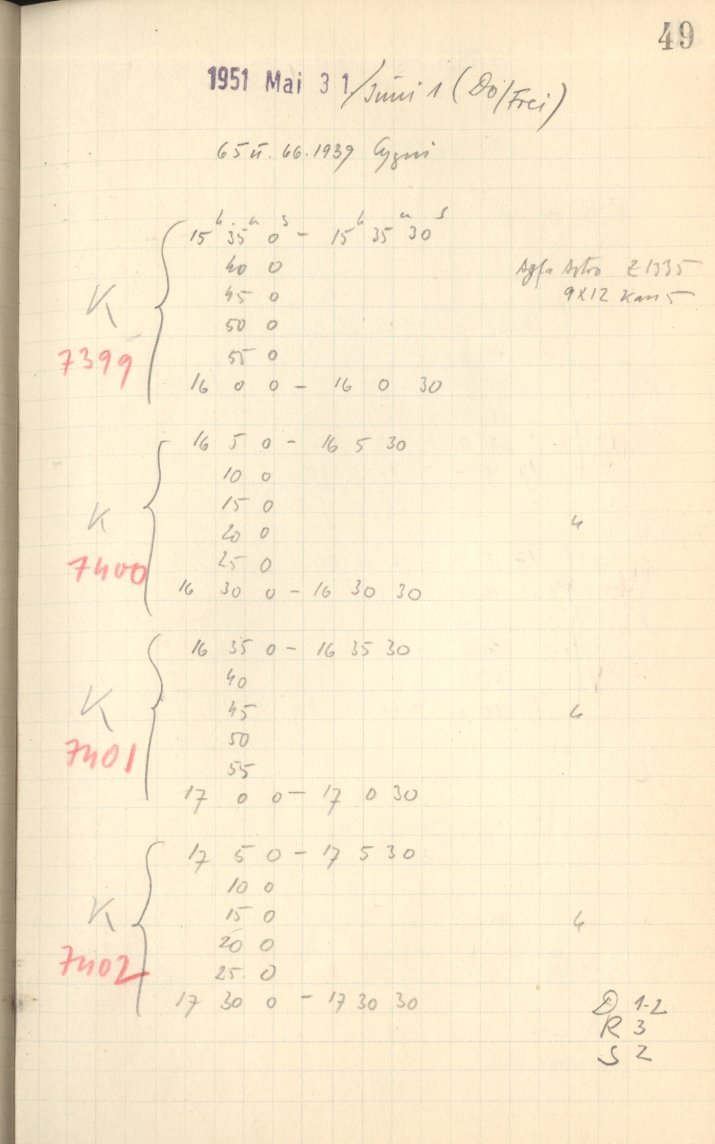 49
1951 Mai 31/Juni 1 (Do/Frei)
65 u. 66.1939 Cygni
15h 35m 0s - 15h 35m 30s
40 0
Agfa Astro Z 1335
45 0
9x12
K
50 0
7399
55 0
16 0 0 - 16 0 30
16 5 0 - 16 5 30
10 0
K
15 0
20 0
7400
25 0
16 30 0 - 16 30 30
16 35 0 - 16 35 30
40
K
45
50
7401
55
17 0 0 - 17 0 30
17 5 0 - 17 5 30
10 0
K
15 0
20 0
7402
25 0
17 30 0 - 17 30 30
D 1-2
R 3
S 2